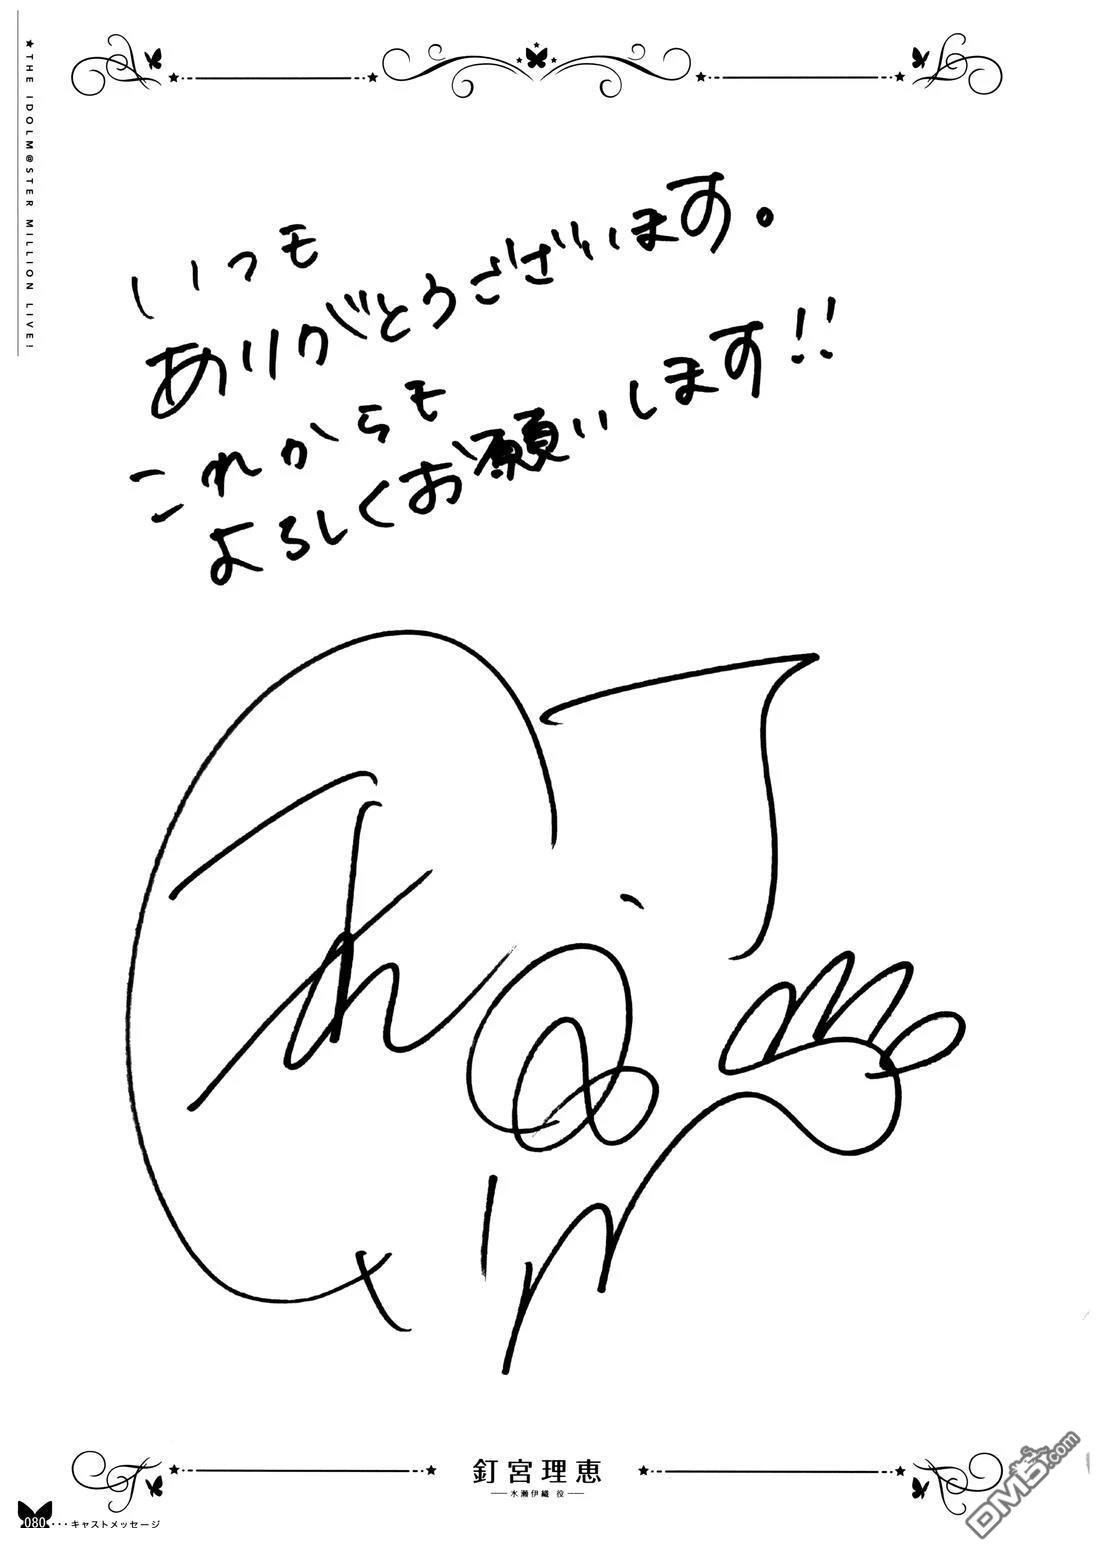 ★THE IDOLM@STER MILLION LIVE!
いつも
ありがとうございます。
これからも
よろしくお願いします!!
釘宮理恵
水瀬伊織 役
080・・・キャストメッセージ
DM5.com